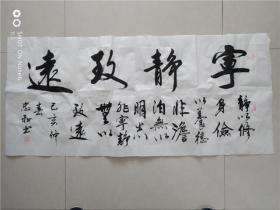 寧靜致遠
靜以修
身儉
以養德
非澹
泊無以
明志
非寧靜
無以
致遠
己亥仲
春
忠書